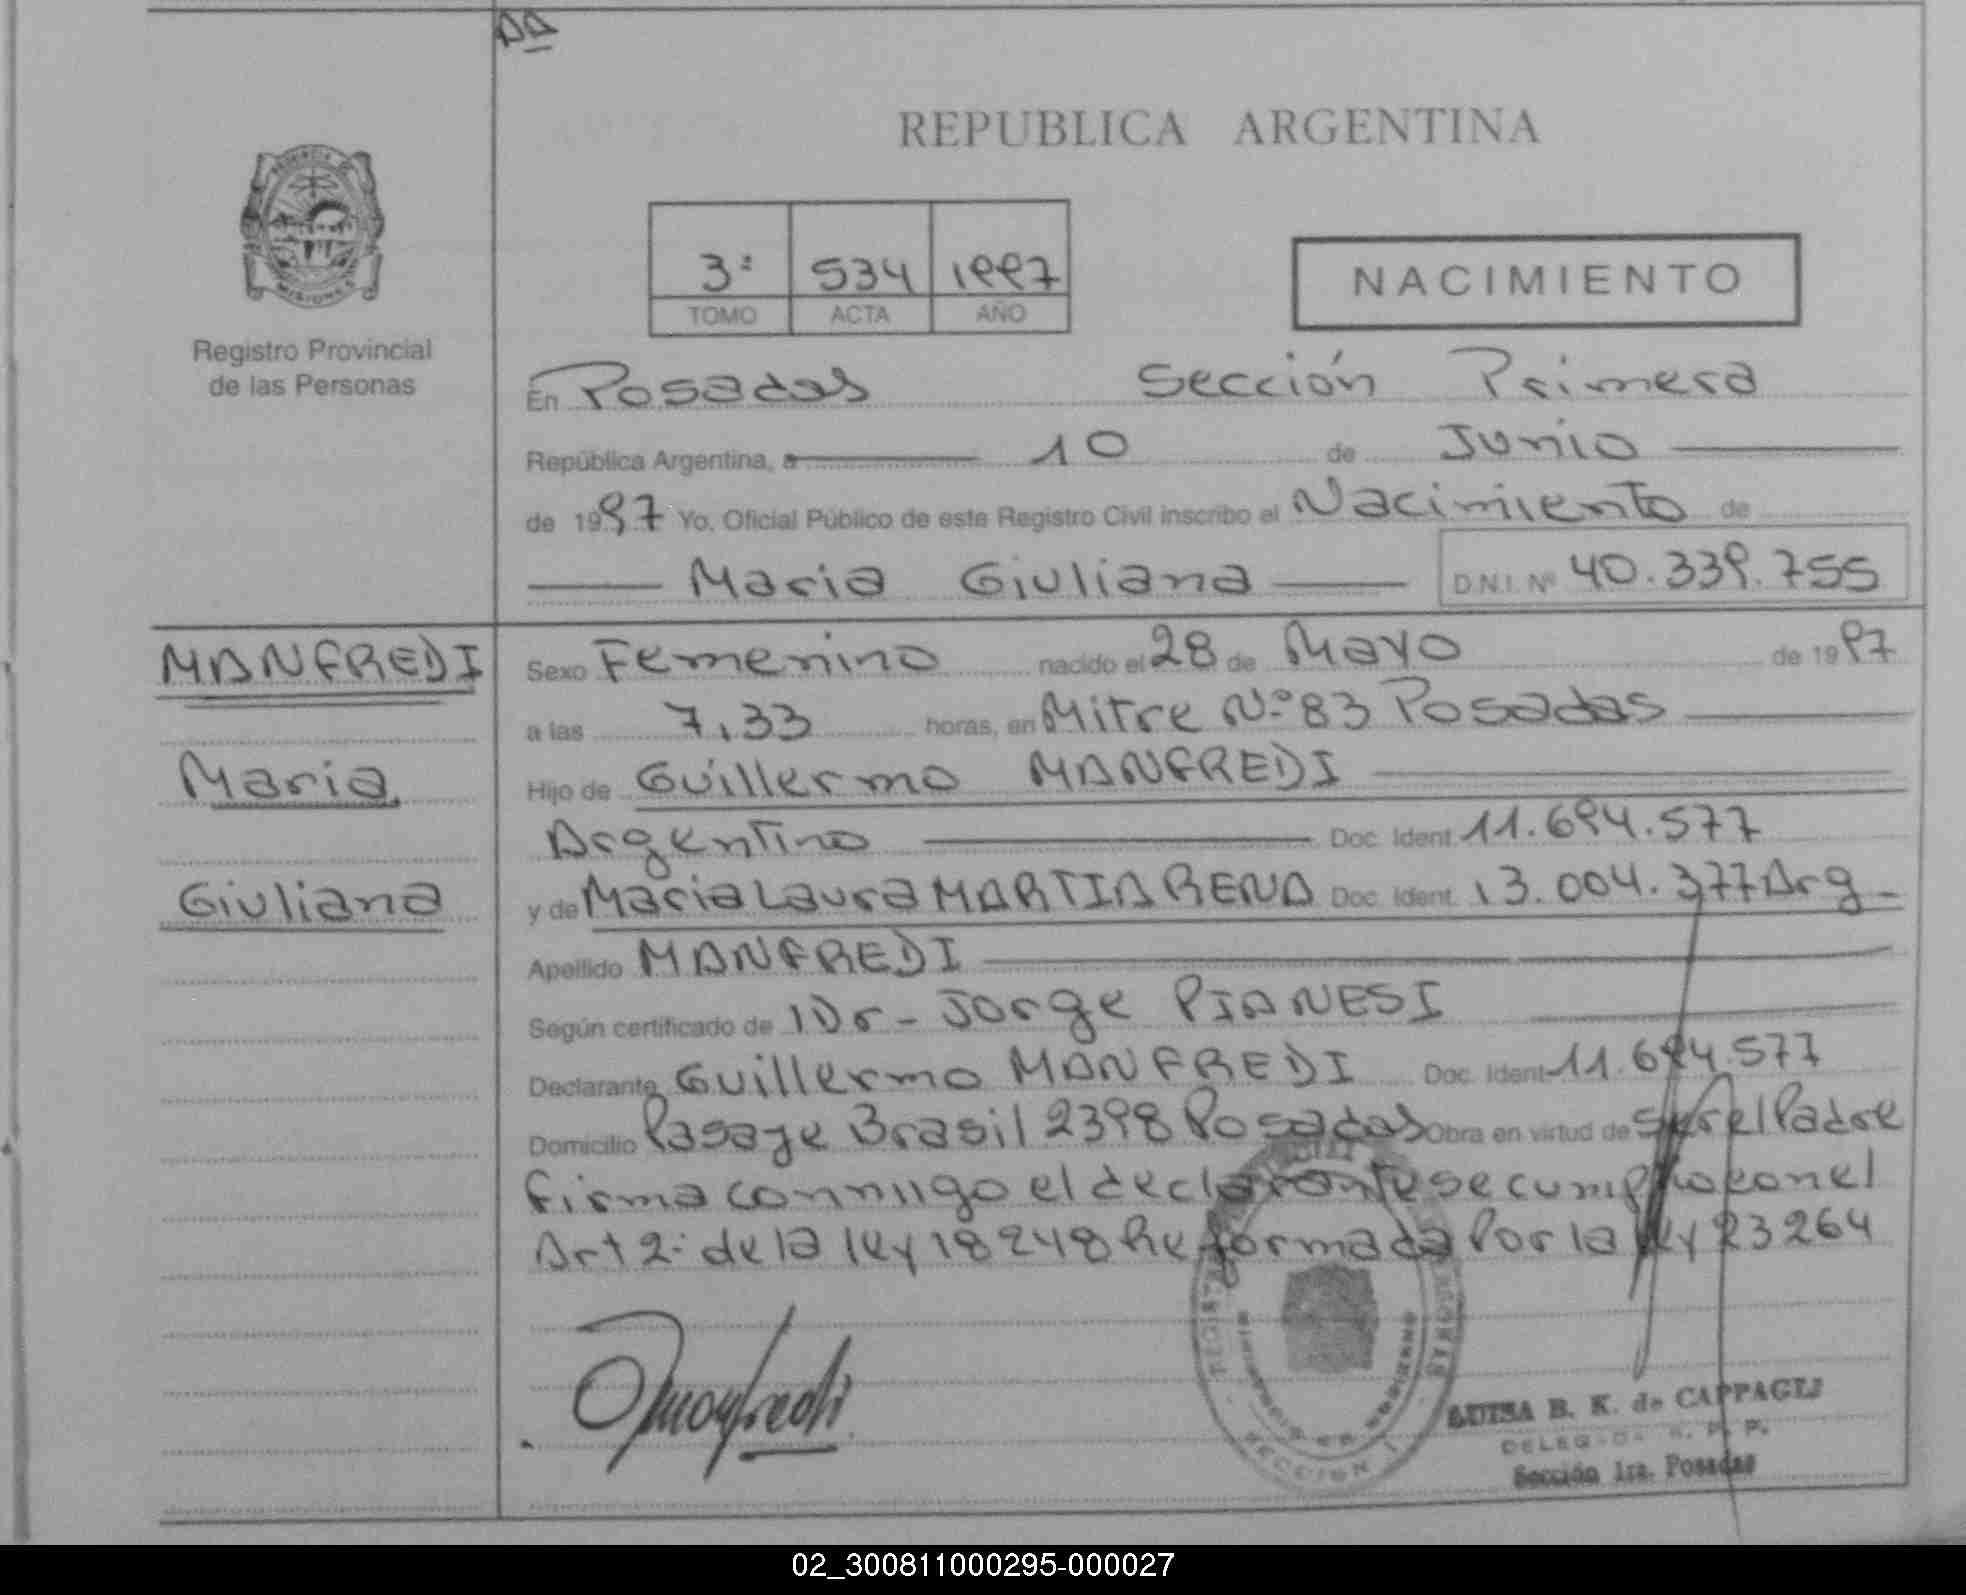 REPUBLICA ARGENTINA
MISIONES
Registro Provincial
de las Personas
3º 534 1997
TOMO ACTA AÑO
NACIMIENTO
En Posadas Sección Primera
República Argentina, a 10 de Junio
de 1997 Yo. Oficial Público de este Registro Civil inscribo el Nacimiento de
Maria Giuliana D.N.I. Nº 40.339.755
MANFREDI
Maria
Giuliana
Sexo Femenino nacido el 28 de Mayo de 1997
a las 7,33 horas, en Mitre Nº 83 Posadas
Hijo de Guillermo MANFREDI
Argentino Doc. Ident. 11.694.577
y de Maria Laura MARTIARENA Doc. Ident. 13.004.377 Arg
Apellido MANFREDI
Según certificado de Dr. Jorge PIANESI
Declarante Guillermo MANFREDI Doc. Ident 11.694.577
Domicilio Pasaje Brasil 2398 Posadas Obra en virtud de ser el Padre
firma conmigo el declarante se cumplio con el
Art 2º de la ley 18248 Reformada Por la ley 23264
Manfredi
SECCION 1
LUISA B. K. de CAPPAGLI
DELEGADA R. P. P.
Sección 1ra. Posadas
02_300811000295-000027